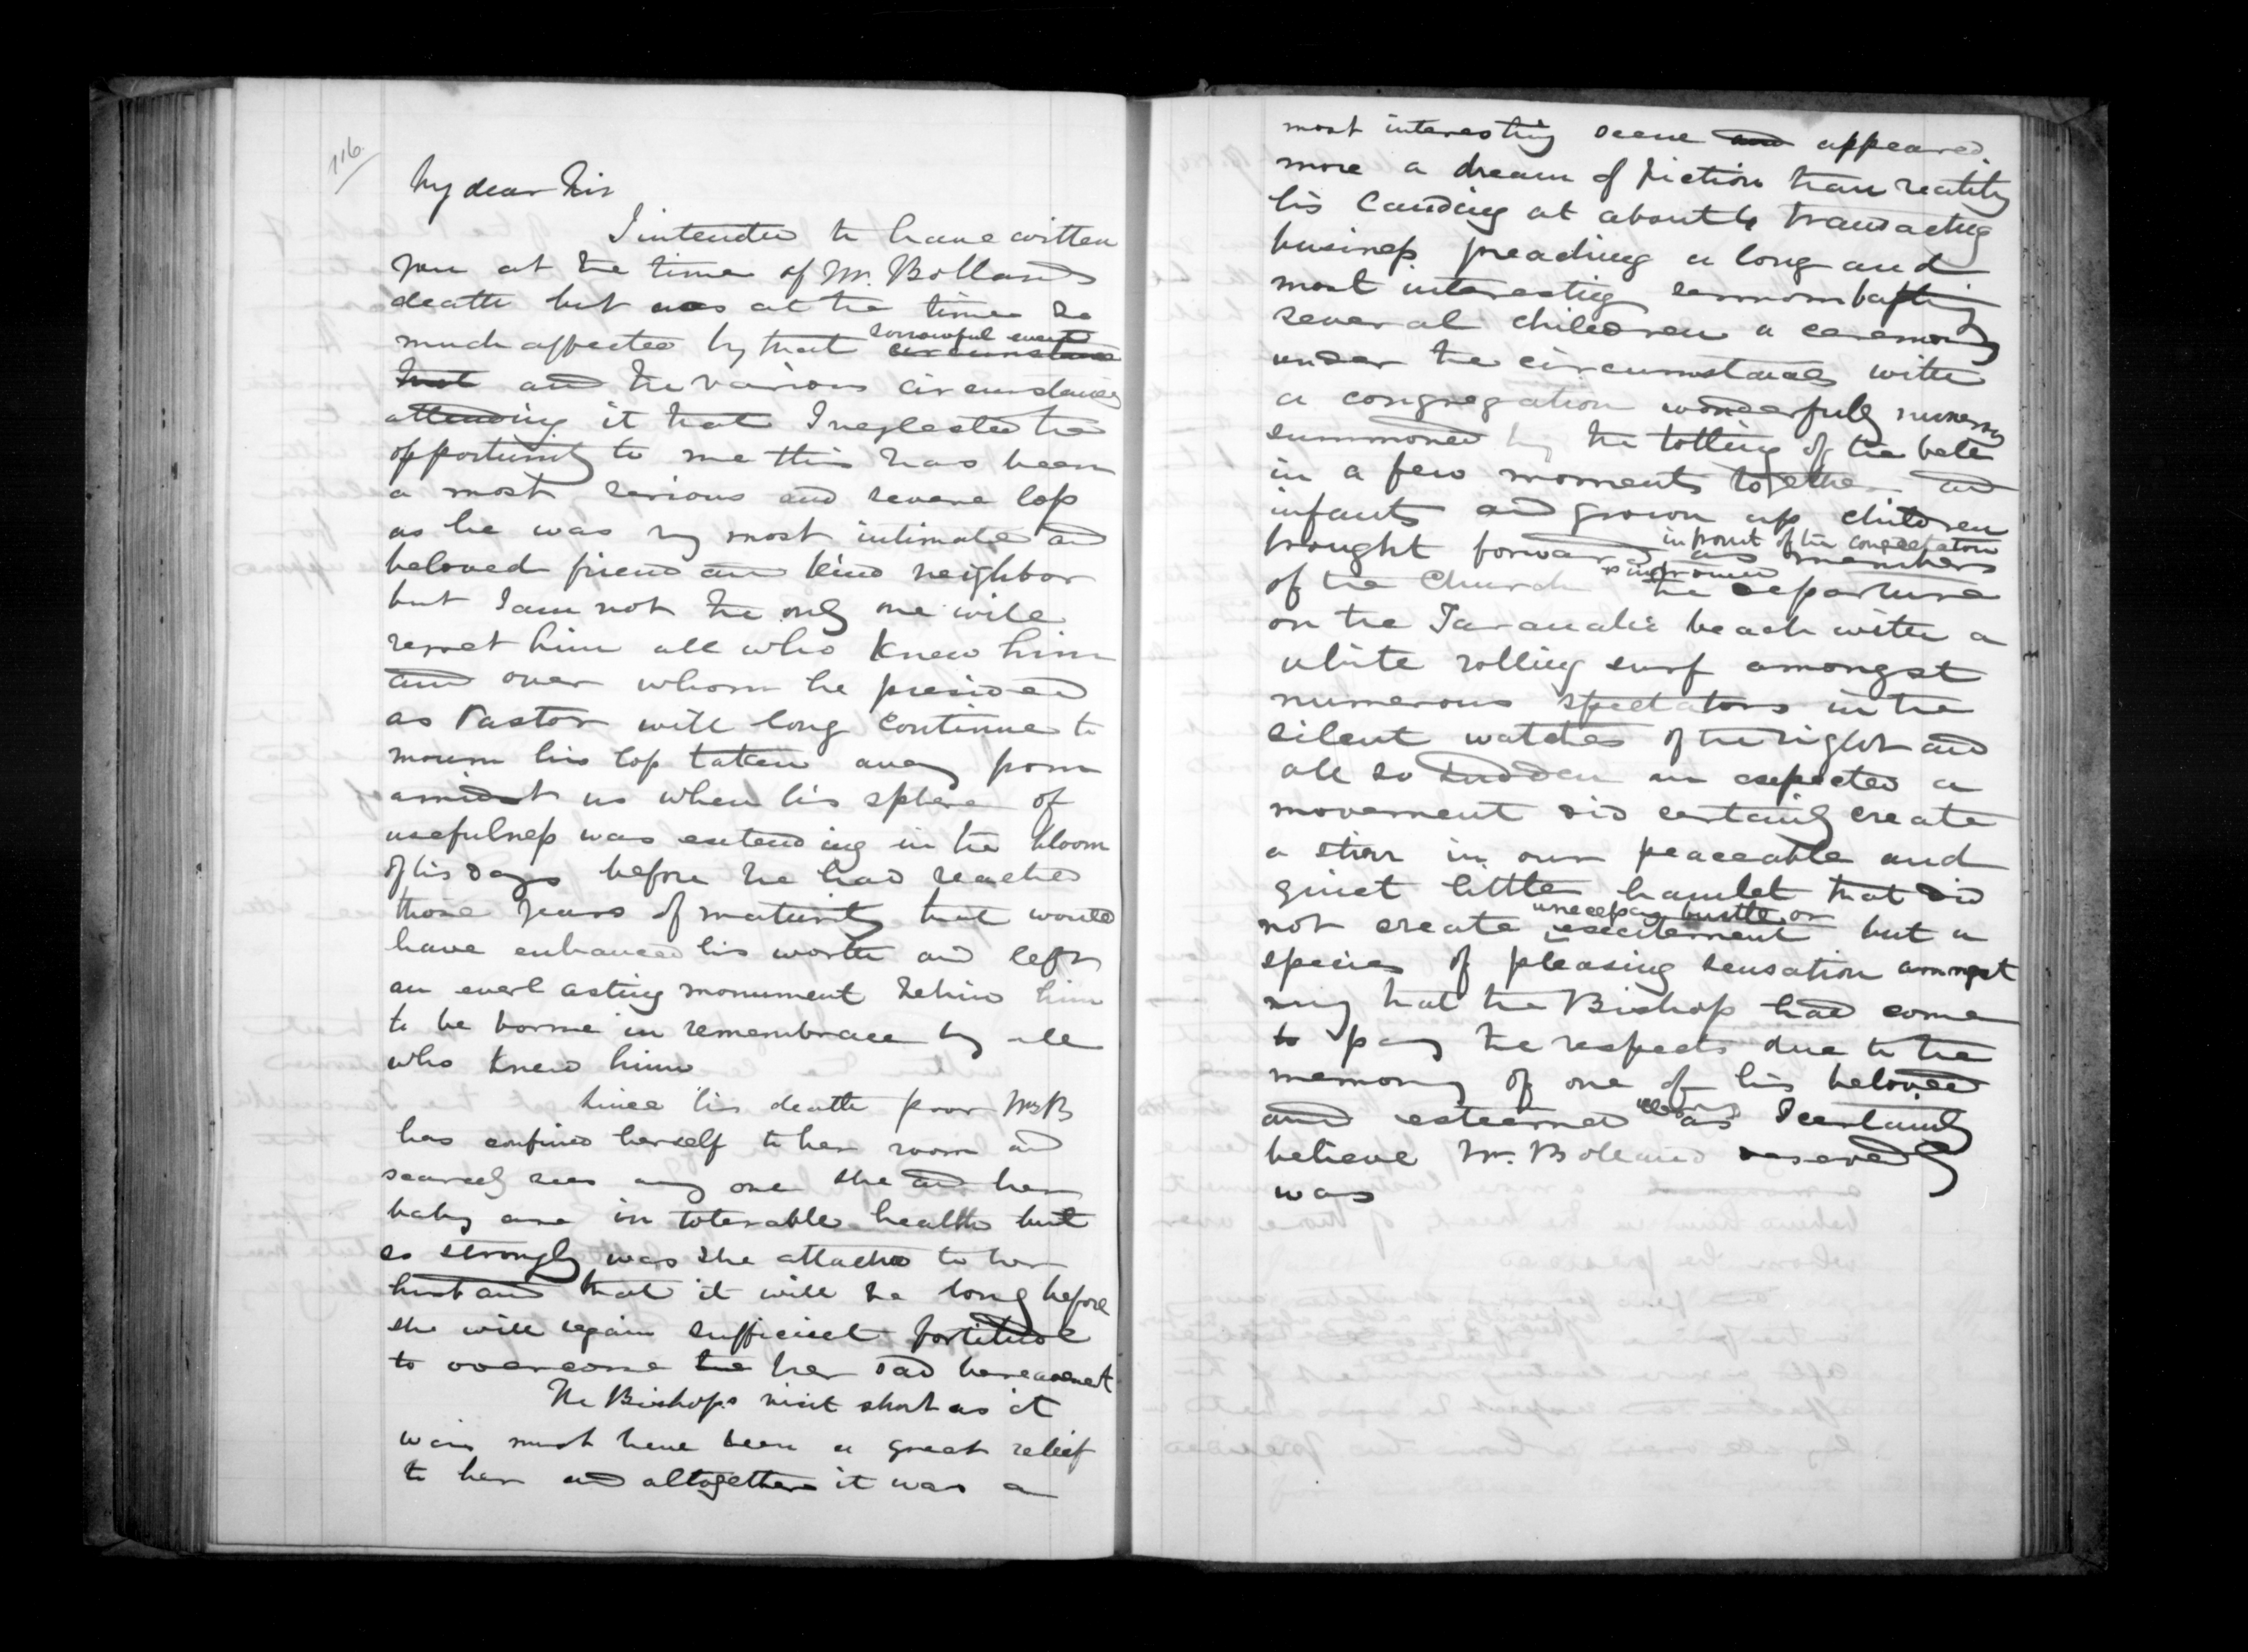 116.
My dear Sir
I intended to have written
you at the time of Mr. Bollands
death but was at the time so
much affected by that sorrowful event
circumstance
that and the various circumstances
attending it that I neglected the
opportunity to me this has been
a most serious and severe loss
as he was my most intimate and
beloved friend and kind neighbor
but I am not the only one will
regret him all who knew him
and over whom he presided
as Pastor will long continue to
mourn his loss taken away from
amidst us when his sphere of
usefulness was extending in the bloom
of his days before he had reached
those years of maturity that would
have enhanced his worth and left
an everlasting monument behind him
to be borne in remembrace by all
who knew him
Since his death poor Mrs B
has confined herself to her room and
scarcely sees any one she and her
baby are in tolerable health but
so strongly was she attached to her
husband that it will be long before
she will again sufficient fortitude
to overcome the her sad bereavement
The Bishops visit short as it
was must have been a great relief
to her and altogether it was a
most interesting scene and appeared
more a dream of fiction than reality
his landing at about transacting
business preaching a long and
most interesting sermon
several children a ceremony
under the circumstances with
a congregation wonderfully numerous
summoned by the tolling of the bell
in a few moments together and
infants and grown up children
in front of the congregation
brought forward as members
of the Church the departure
on the Taranaki beach with a
white rolling surf amongst
numerous spectators in the
silent watches of the night and
all so sudden un expected a
movement did certainly create
a stirr in our peaceable and
quiet little hamlet that did
unnecessary bustle or
not create excitement but a
species of pleasing sensation amongst
many that the Bishop had come
to pay the respects due to the
memory of one of his beloved
and esteemed as I certainly
believe Mr. Bolland deservedly
was